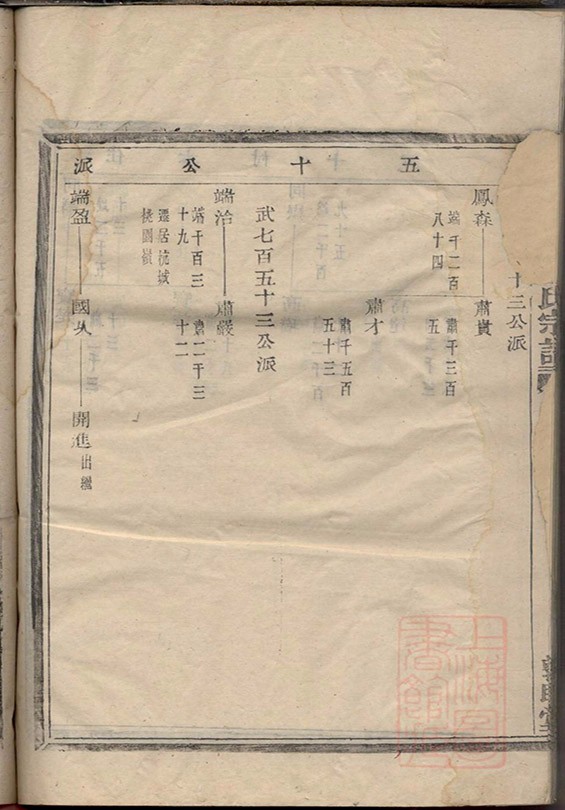 五十公派
十三公派
氏宗譜
鳳森 肅貴
端千二百八十四 肅千三百五
肅才
肅千五百五十三
武七百五十三公派
端洽 肅嚴
端千百三十九 肅二千三十二
遷居杭城
桃園嶺
端盈 國 開進出繼
上海圖書館